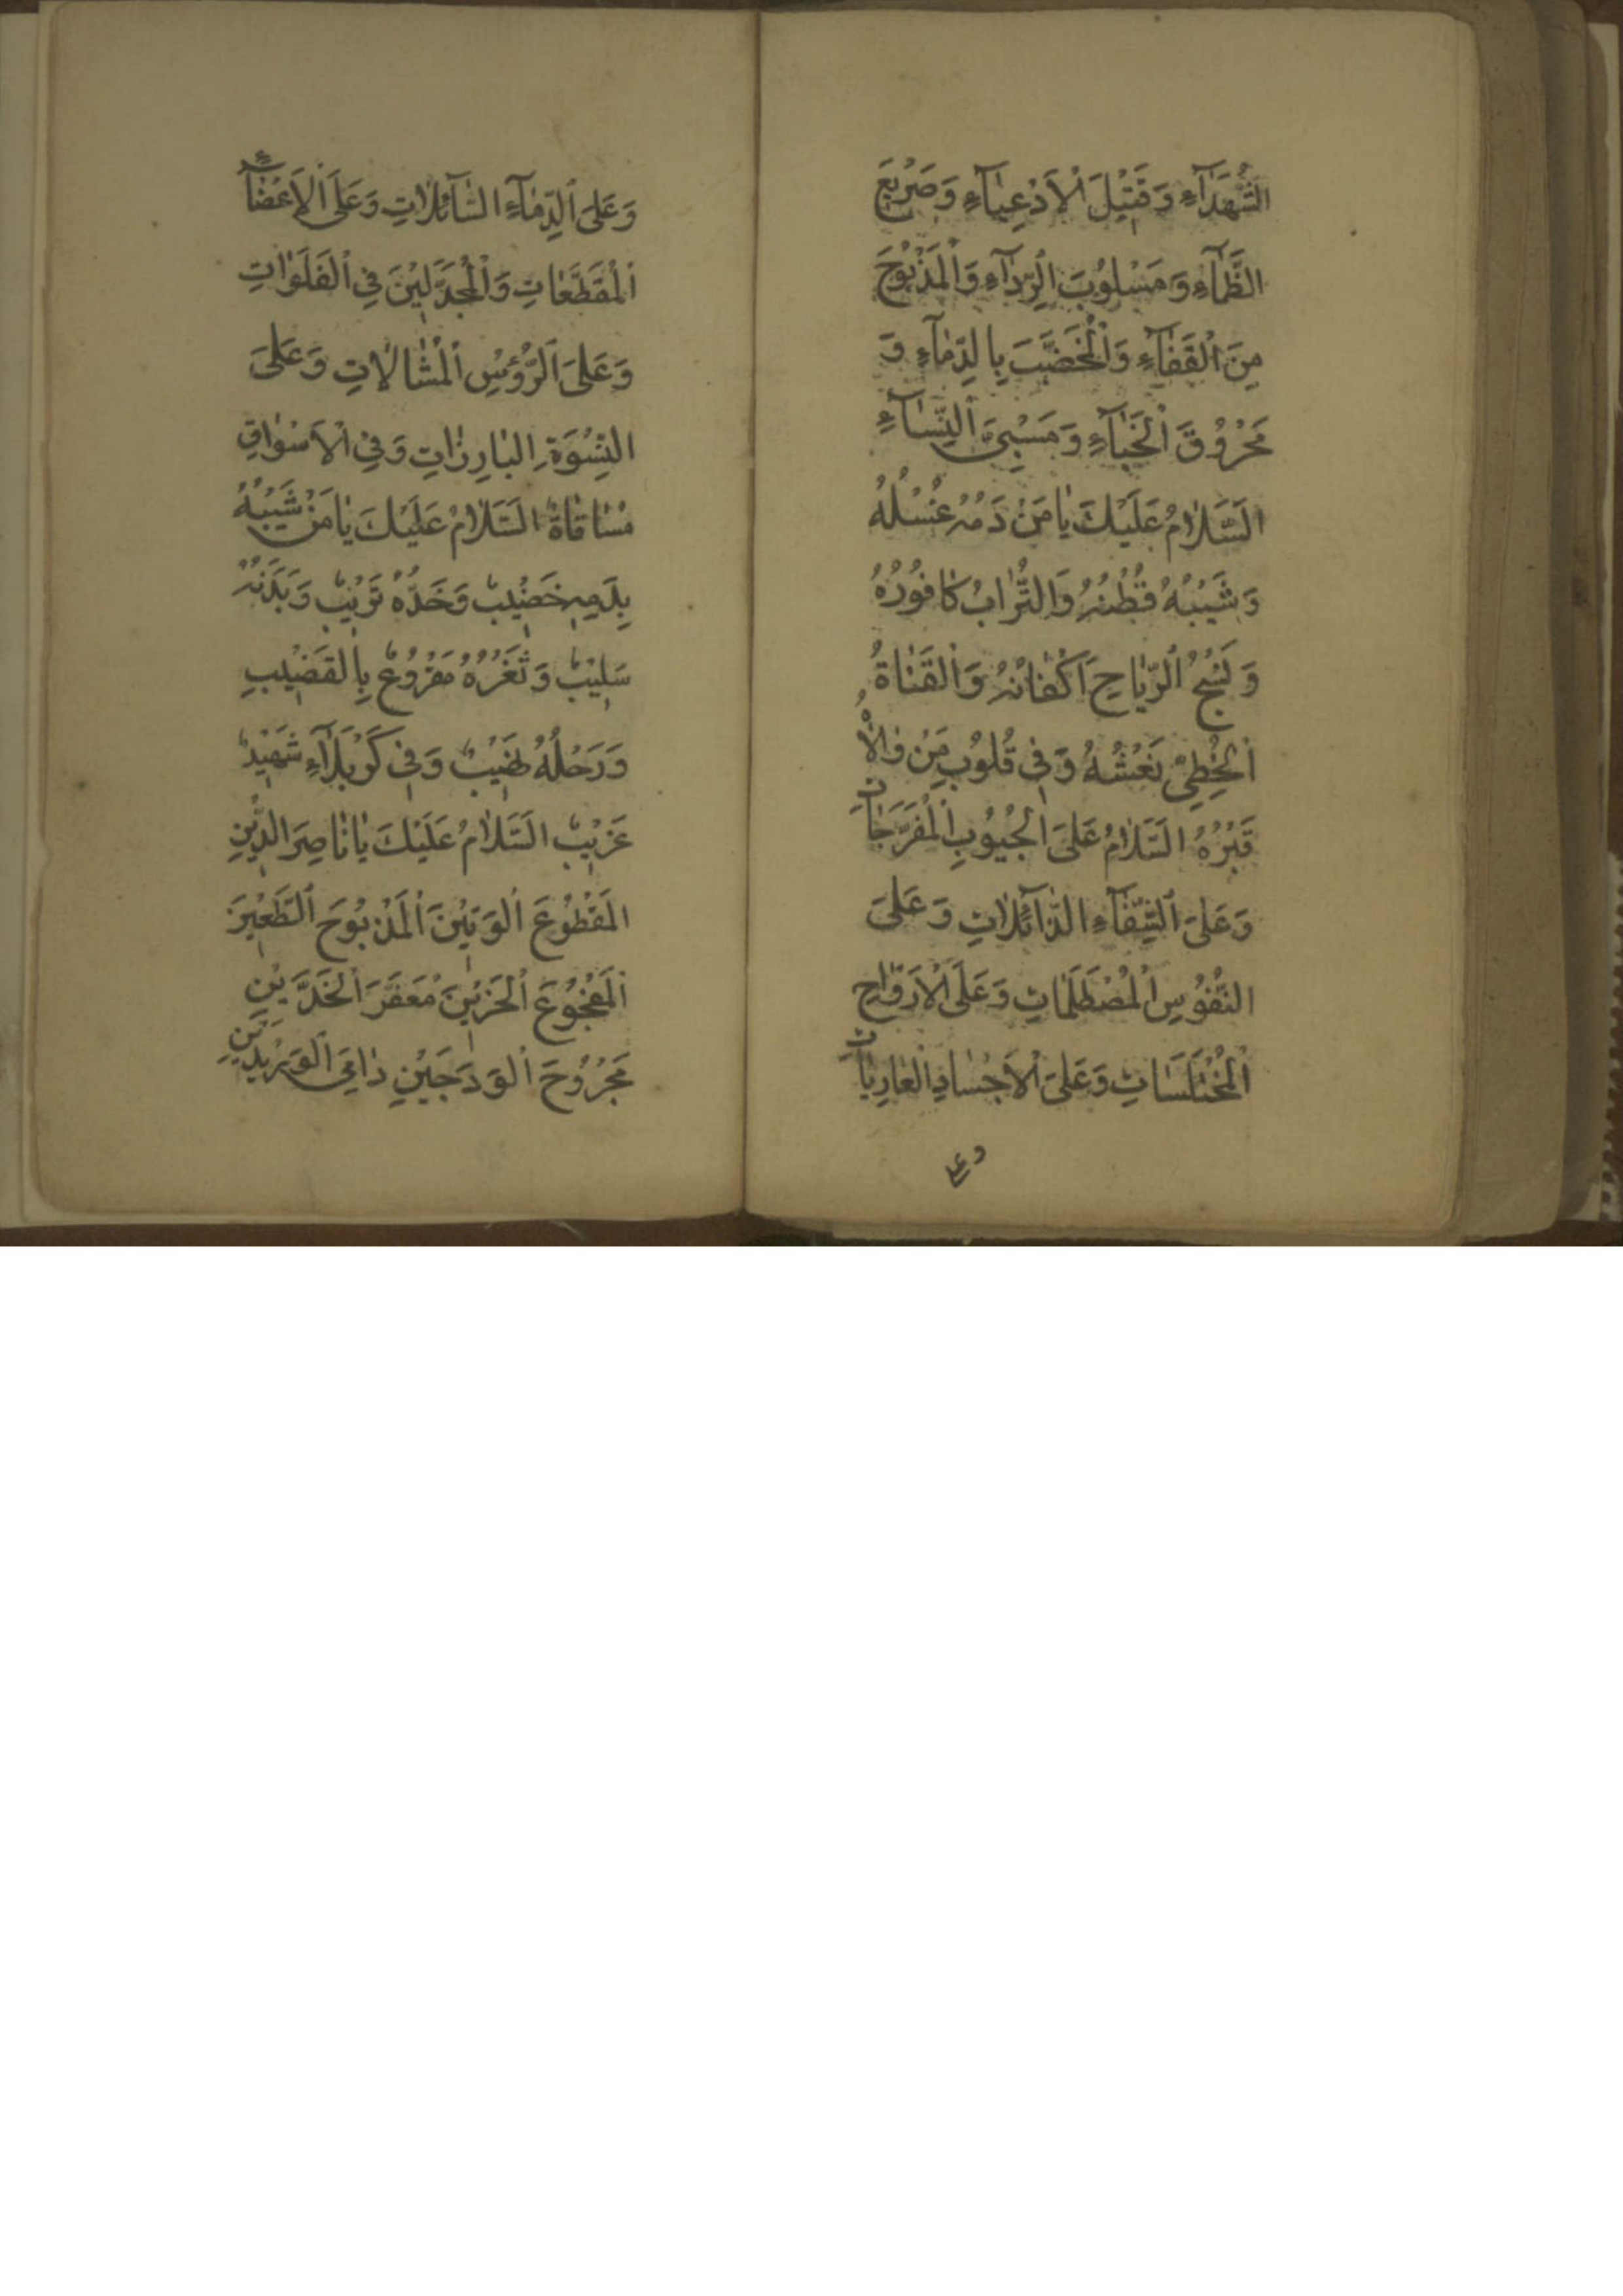 الشُّهَدَآءِ وَقَتِيْلَ الْاَدْعِيَآءِ وَصَرِيْعَ
الظَّمَآءِ وَمَسْلُوْبَ الرِّدٰآءِ وَالْمَذْبُوْحَ
مِنَ الْقَفَآءِ وَالْمُخَضَّبَ بِالدِّمٰآءِ وَ
مَحْرُوْقَ الْخَبٰآءِ وَمَسْبِیَّ النِّسٰآءِ
السَّلٰامُ عَلَيْكَ يٰا مَنْ دَمُهُ غُسْلُهُ
وَشَيْبُهُ قُطْنُهُ وَالتُّرٰابُ كٰافُوْرُهُ
وَنَسْجُ الرِّيٰاحِ اَكْفٰانُهُ وَالْقَنٰاةُ
الْخِطِیُّ نَعْشُهُ وَفِی قُلُوْبِ مَنْ وٰالٰاهُ
قَبْرُهُ السَّلٰامُ عَلَی الْجُيُوْبِ الْمُفَرَّجٰاتِ
وَعَلَی الشِّفٰآءِ الذّٰآئِلٰاتِ وَعَلَی
النُّفُوْسِ الْمُصْطَلَمٰاتِ وَعَلَی الْاَرْوٰاحِ
الْمُخْتَلَسٰاتِ وَعَلَی الْاَجْسٰادِ الْعٰارِيٰاتِ
وعل
وَعَلَی الدِّمٰآءِ السّٰآئِلٰاتِ وَعَلَی الْاَعْضٰآءِ
الْمُقَطَّعٰاتِ وَالْمُجَدَّلِيْنَ فِی الْفَلَوٰاتِ
وَعَلَی الرُّؤُسِ الْمُشٰالٰاتِ وَعَلَی
النِّسْوَةِ الْبٰارِزٰاتِ وَفِی الْاَسْوٰاقِ
مُسٰاقٰاةً السَّلٰامُ عَلَيْكَ يٰا مَنْ شَيْبُهُ
بِدَمِهِ خَضِيْبٌ وَخَدُّهُ تَرِيْبٌ وَبَدَنُهُ
سَلِيْبٌ وَثَغْرُهُ مَقْرُوْعٌ بِالْقَضِيْبِ
وَرَحْلُهُ نَهِيْبٌ وَفِی كَرْبَلٰآءِ شَهِيْدٌ
غَرِيْبٌ السَّلٰامُ عَلَيْكَ يٰا نٰاصِرَ الدِّيْنِ
الْمَقْطُوْعَ الْوَتِيْنَ الْمَذْبُوْحَ
الْمَفْجُوْعَ الْحَزِيْنَ مُعَفَّرَ الْخَدَّيْنِ
مَجْرُوْحَ الْوَدَجَيْنِ دٰامِیَ الْوَرِيْدَيْنِ